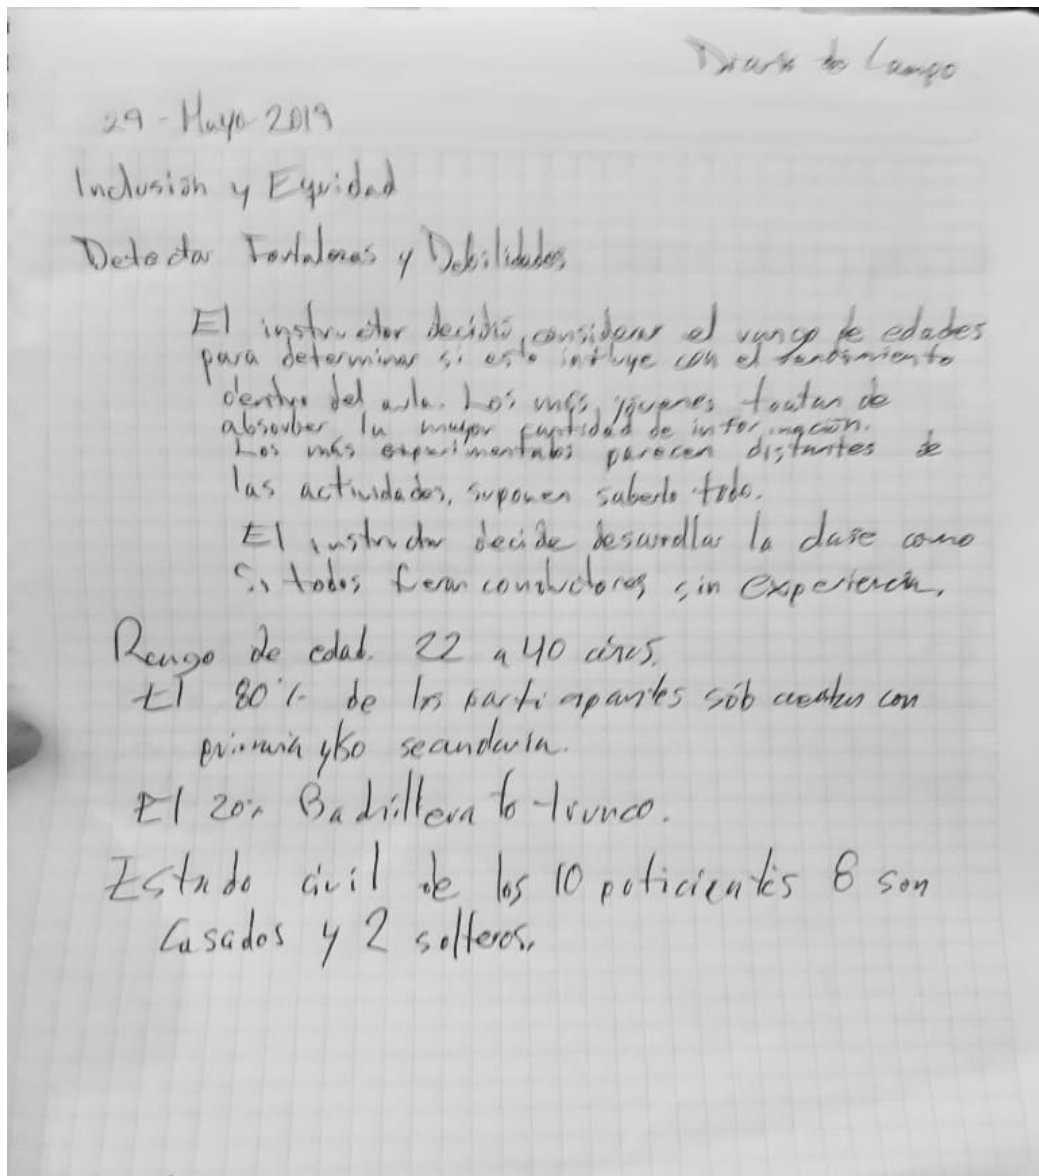 Diario de Campo
29 - Mayo 2019
Inclusión y Equidad
Detectar Fortalezas y Debilidades
El instructor decidió considerar el rango de edades
para determinar si esto influye con el rendimiento
dentro del aula. Los más jóvenes tratan de
absorber la mayor cantidad de información.
Los más experimentados parecen distantes de
las actividades, suponen saberlo todo.
El instructor decide desarrollar la clase como
si todos fueran conductores sin experiencia.
Rango de edad. 22 a 40 años.
El 80% de los participantes sólo cuentan con
primaria y/o secundaria.
El 20% Bachillerato trunco.
Estado civil de los 10 participantes 8 son
Casados y 2 solteros.